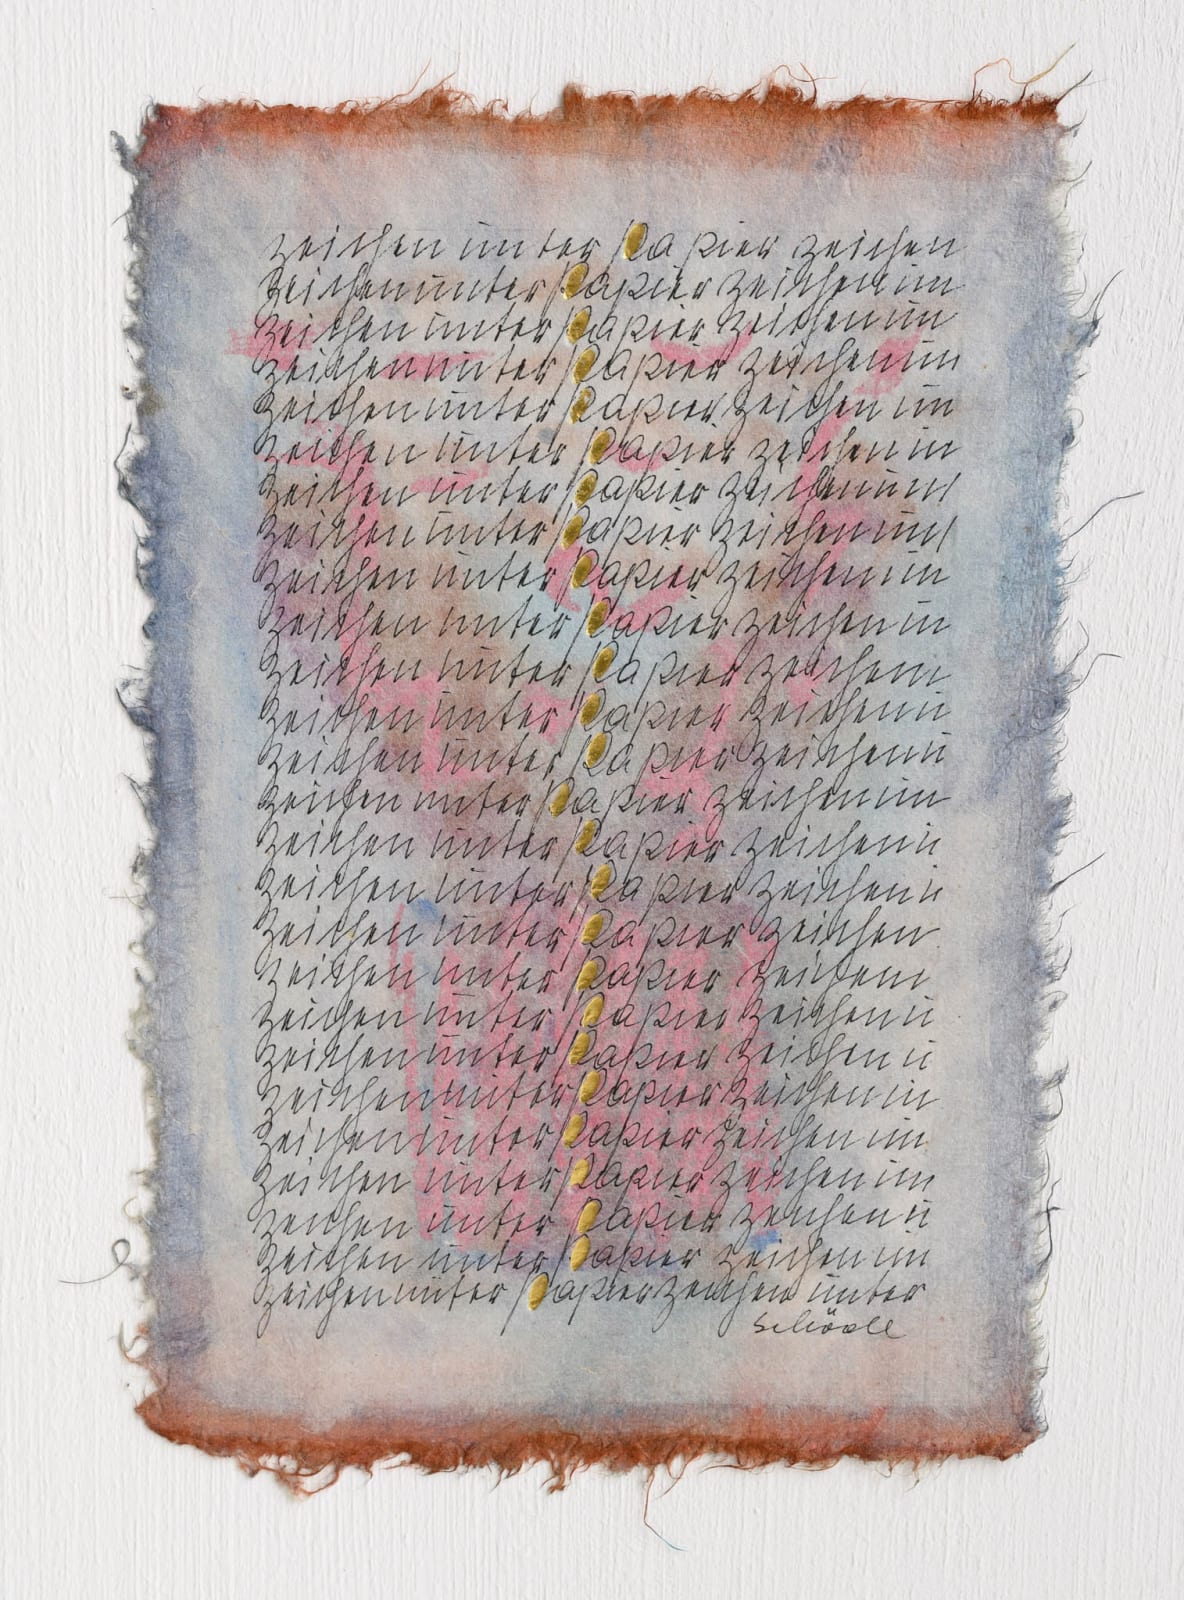 zeichen unter Papier zeichen
zeichen unter Papier zeichen un
zeichen unter Papier zeichen un
zeichen unter Papier zeichen un
zeichen unter Papier zeichen un
zeichen unter Papier zeichen un
zeichen unter Papier zeichen un
zeichen unter Papier zeichen un
zeichen unter Papier zeichen un
zeichen unter Papier zeichen un
zeichen unter Papier zeichen
zeichen unter Papier zeichen u
zeichen unter Papier zeichen u
zeichen unter Papier zeichen un
zeichen unter Papier zeichen u
zeichen unter Papier zeichen u
zeichen unter Papier zeichen
zeichen unter Papier zeichen
zeichen unter Papier zeichen u
zeichen unter Papier zeichen u
zeichen unter Papier zeichen un
zeichen unter Papier zeichen un
zeichen unter Papier zeichen un
zeichen unter Papier zeichen u
zeichen unter Papier zeichen un
zeichen unter Papier zeichen unter